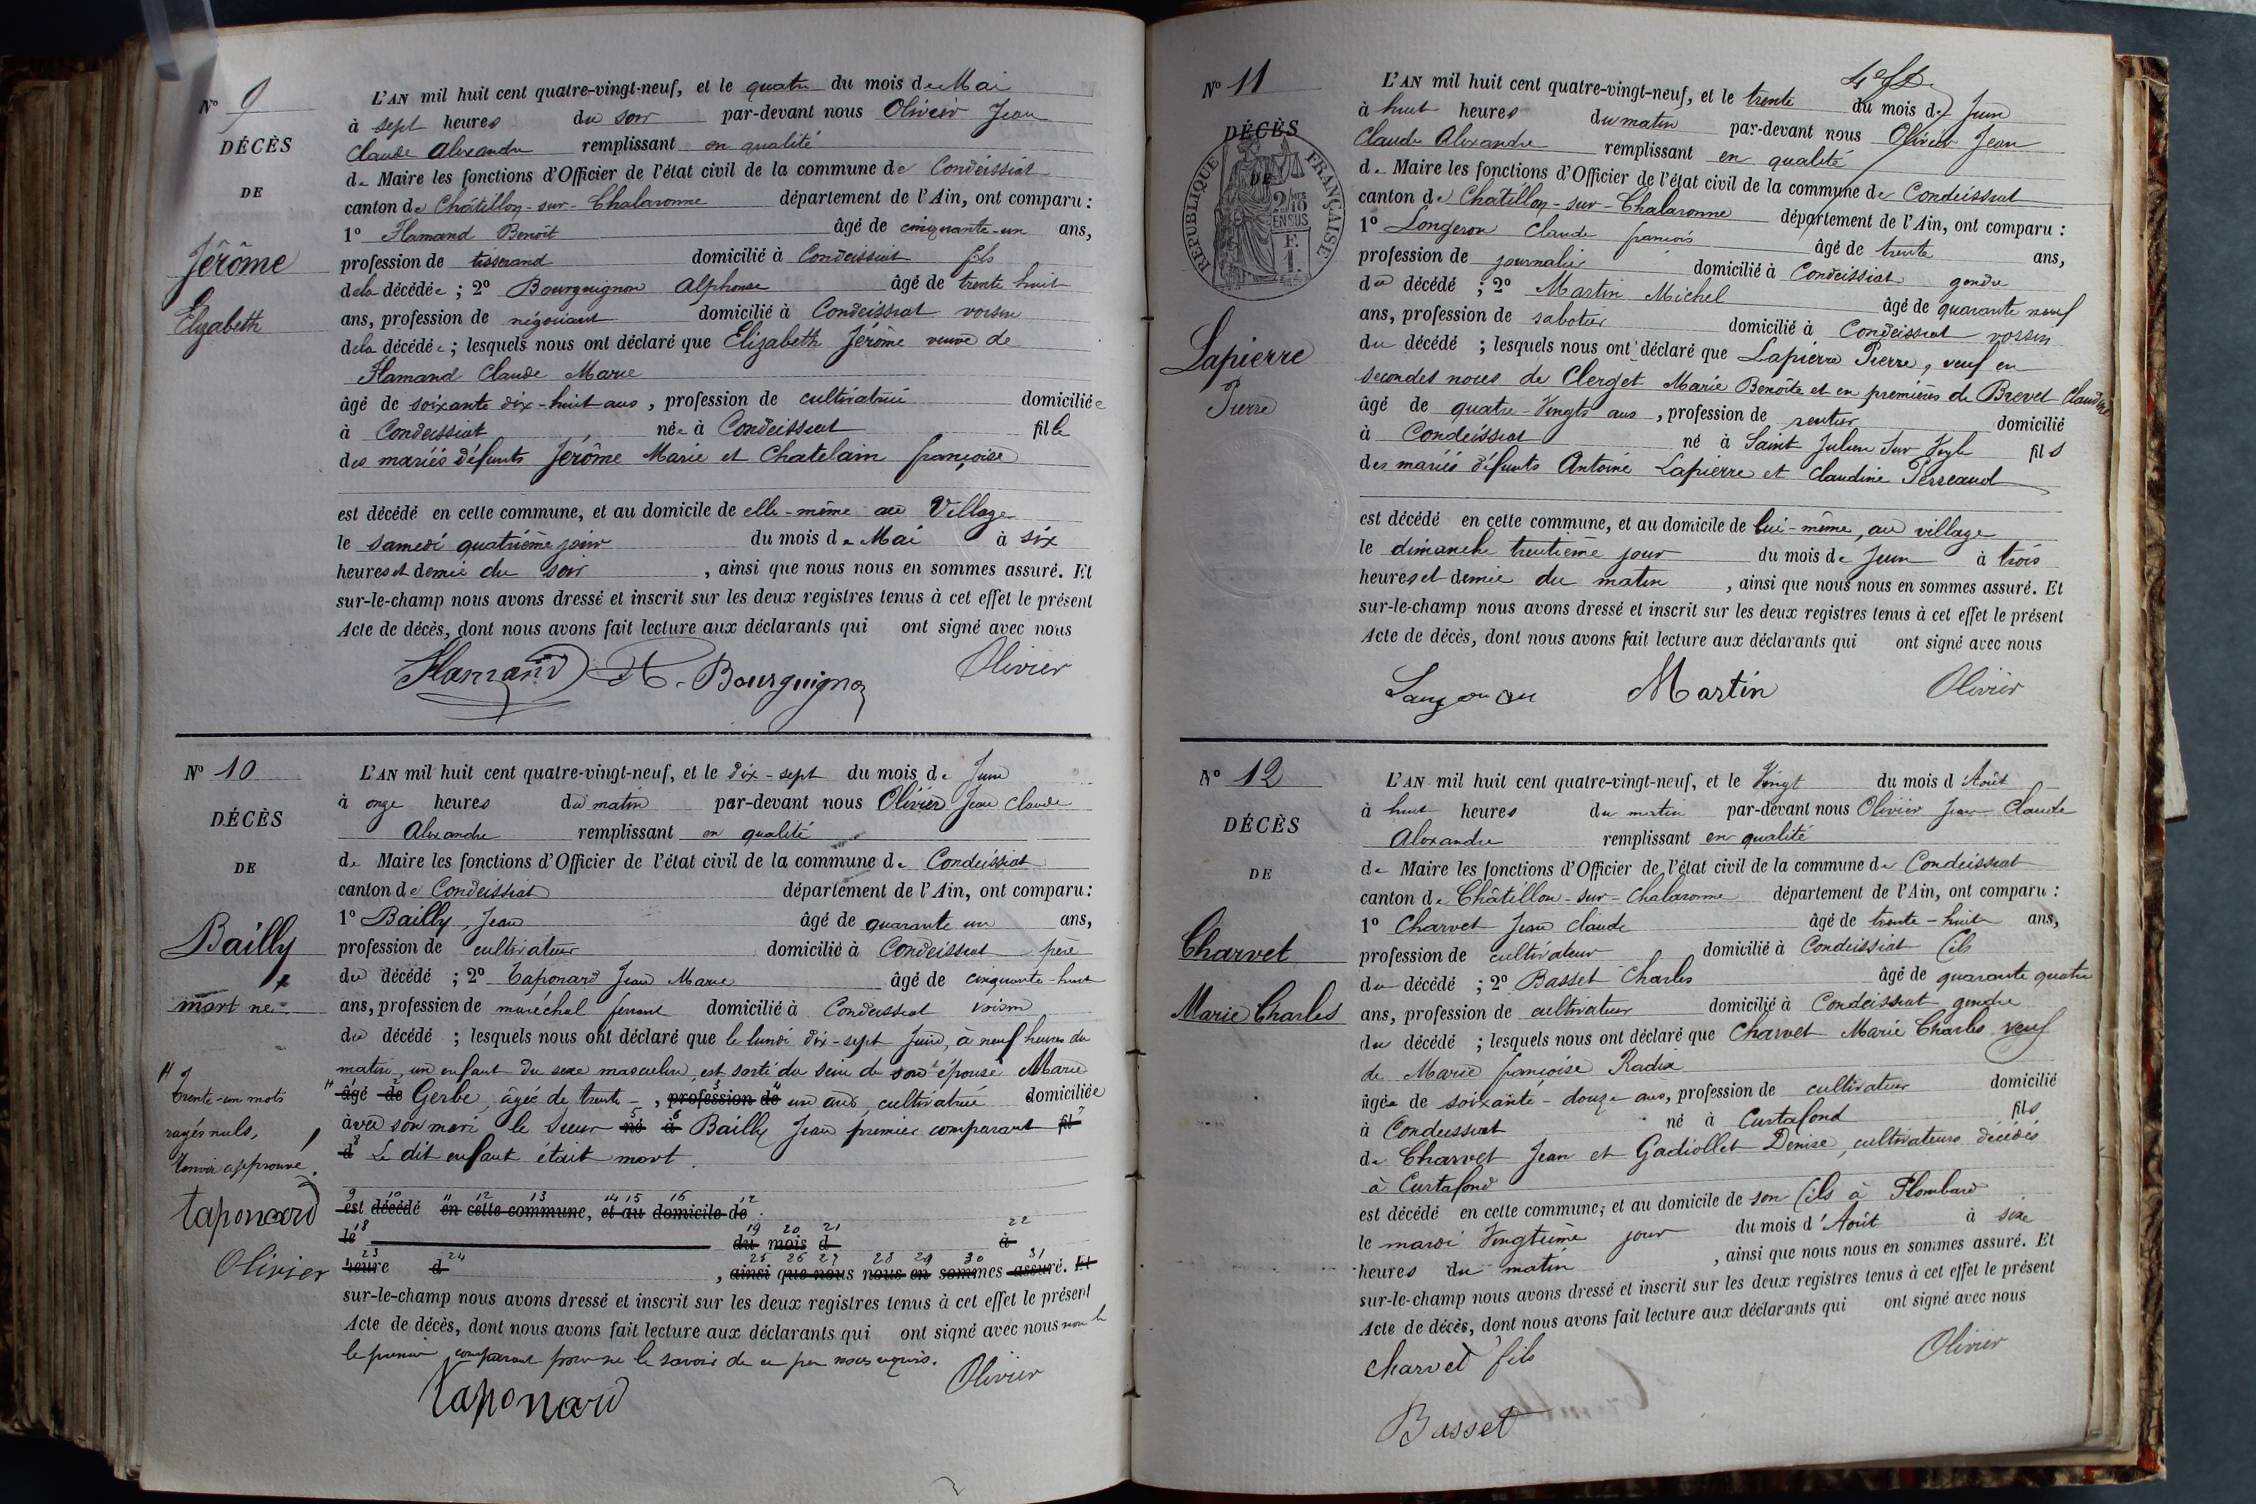 N° 9
DÉCÈS
DE
Jérôme
Elizabeth
L'AN mil huit cent quatre-vingt-neuf, et le quatre du mois de Mai
à sept heures du soir par-devant nous Olivier Jean
Claude Alexandre remplissant en qualité
de Maire les fonctions d'Officier de l'état civil de la commune de Condeissiat
canton de Châtillon-sur-Chalaronne département de l'Ain, ont comparu :
1° Flamand Benoît âgé de cinquante-un ans,
profession de tisserand domicilié à Condeissiat fils
de la décédée ; 2° Bourguignon Alphonse âgé de trente huit
ans, profession de négociant domicilié à Condeissiat voisin
de la décédée ; lesquels nous ont déclaré que Elizabeth Jérôme veuve de
Flamand Claude Marie
âgé de soixante dix-huit ans, profession de cultivatrice domiciliée
à Condeissiat née à Condeissiat fille
des mariés défunts Jérôme Marie et Chatelain françoise
est décédé en cette commune, et au domicile de elle-même au Village
le samedi quatrième jour du mois de Mai à six
heures et demie du soir, ainsi que nous nous en sommes assuré. Et
sur-le-champ nous avons dressé et inscrit sur les deux registres tenus à cet effet le présent
Acte de décès, dont nous avons fait lecture aux déclarants qui ont signé avec nous
Flamand A. Bourguignon Olivier
N° 10
DÉCÈS
DE
Bailly
mort né
trente-un mots
rayés nuls,
renvoi approuvé.
taponard
Olivier
L'AN mil huit cent quatre-vingt-neuf, et le dix-sept du mois de Juin
à onze heures du matin par-devant nous Olivier Jean Claude
Alexandre remplissant en qualité
de Maire les fonctions d'Officier de l'état civil de la commune de Condeissiat
canton de Condeissiat département de l'Ain, ont comparu :
1° Bailly, Jean âgé de quarante un ans,
profession de cultivateur domicilié à Condeissiat père
du décédé ; 2° Taponard Jean Marie âgé de cinquante-huit
ans, profession de maréchal ferrant domicilié à Condeissiat voisin
du décédé ; lesquels nous ont déclaré que le lundi dix-sept Juin, à neuf heures du
matin, un enfant du sexe masculin, est sorti du sein de son épouse Marie
âgé de Gerbe, âgée de trente-, profession de un ans, cultivatrice domiciliée
avec son mari le sieur né à Bailly Jean premier comparant fil
d Le dit enfant était mort.
est décédé en cette commune, et au domicile de
le du mois d à
heure d, ainsi que nous nous en sommes assuré. Et
sur-le-champ nous avons dressé et inscrit sur les deux registres tenus à cet effet le présent
Acte de décès, dont nous avons fait lecture aux déclarants qui ont signé avec nous non
le premier comparant pour ne le savoir de ce par nous requis.
taponard Olivier
N° 11
DÉCÈS
DE
RÉPUBLIQUE FRANÇAISE
2/10 EN SUS
F.
1.
Lapierre
Pierre
L'AN mil huit cent quatre-vingt-neuf, et le trente du mois de Juin
à huit heures du matin par-devant nous Olivier Jean
Claude Alexandre remplissant en qualité
de Maire les fonctions d'Officier de l'état civil de la commune de Condeissiat
canton de Châtillon-sur-Chalaronne département de l'Ain, ont comparu :
1° Longeron Claude françois âgé de trente ans,
profession de journalier domicilié à Condeissiat gendre
du décédé ; 2° Martin Michel âgé de quarante neuf
ans, profession de sabotier domicilié à Condeissiat voisin
du décédé ; lesquels nous ont déclaré que Lapierre Pierre, veuf en
secondes noces de Clerget Marie Benoîte et en premières de Brevet Claudine
âgé de quatre-Vingts ans, profession de rentier domicilié
à Condeissiat né à Saint Julien Sur Veyle fils
des mariés défunts Antoine Lapierre et Claudine Perreaud
est décédé en cette commune, et au domicile de lui-même, au village
le dimanche trentième jour du mois de Juin à trois
heures et demie du matin, ainsi que nous nous en sommes assuré. Et
sur-le-champ nous avons dressé et inscrit sur les deux registres tenus à cet effet le présent
Acte de décès, dont nous avons fait lecture aux déclarants qui ont signé avec nous
Martin Olivier
N° 12
DÉCÈS
DE
Charvet
Marie Charles
L'AN mil huit cent quatre-vingt-neuf, et le Vingt du mois d'Août
à huit heures du matin par-devant nous Olivier Jean Claude
Alexandre remplissant en qualité
de Maire les fonctions d'Officier de l'état civil de la commune de Condeissiat
canton de Châtillon-sur-Chalaronne département de l'Ain, ont comparu :
1° Charvet Jean Claude âgé de trente-huit ans,
profession de cultivateur domicilié à Condeissiat fils
du décédé ; 2° Basset Charles âgé de quarante quatre
ans, profession de cultivateur domicilié à Condeissiat gendre
du décédé ; lesquels nous ont déclaré que Charvet Marie Charles veuf
de Marie françoise Radix
âgé de soixante-douze ans, profession de cultivateur domicilié
à Condeissiat né à Curtafond fils
de Charvet Jean et Gadiollet Denise, cultivateurs décédés
à Curtafond
est décédé en cette commune, et au domicile de son fils à Flombard
le mardi Vingtième jour du mois d'Août à six
heures du matin, ainsi que nous nous en sommes assuré. Et
sur-le-champ nous avons dressé et inscrit sur les deux registres tenus à cet effet le présent
Acte de décès, dont nous avons fait lecture aux déclarants qui ont signé avec nous
charvet fils Olivier
Basset